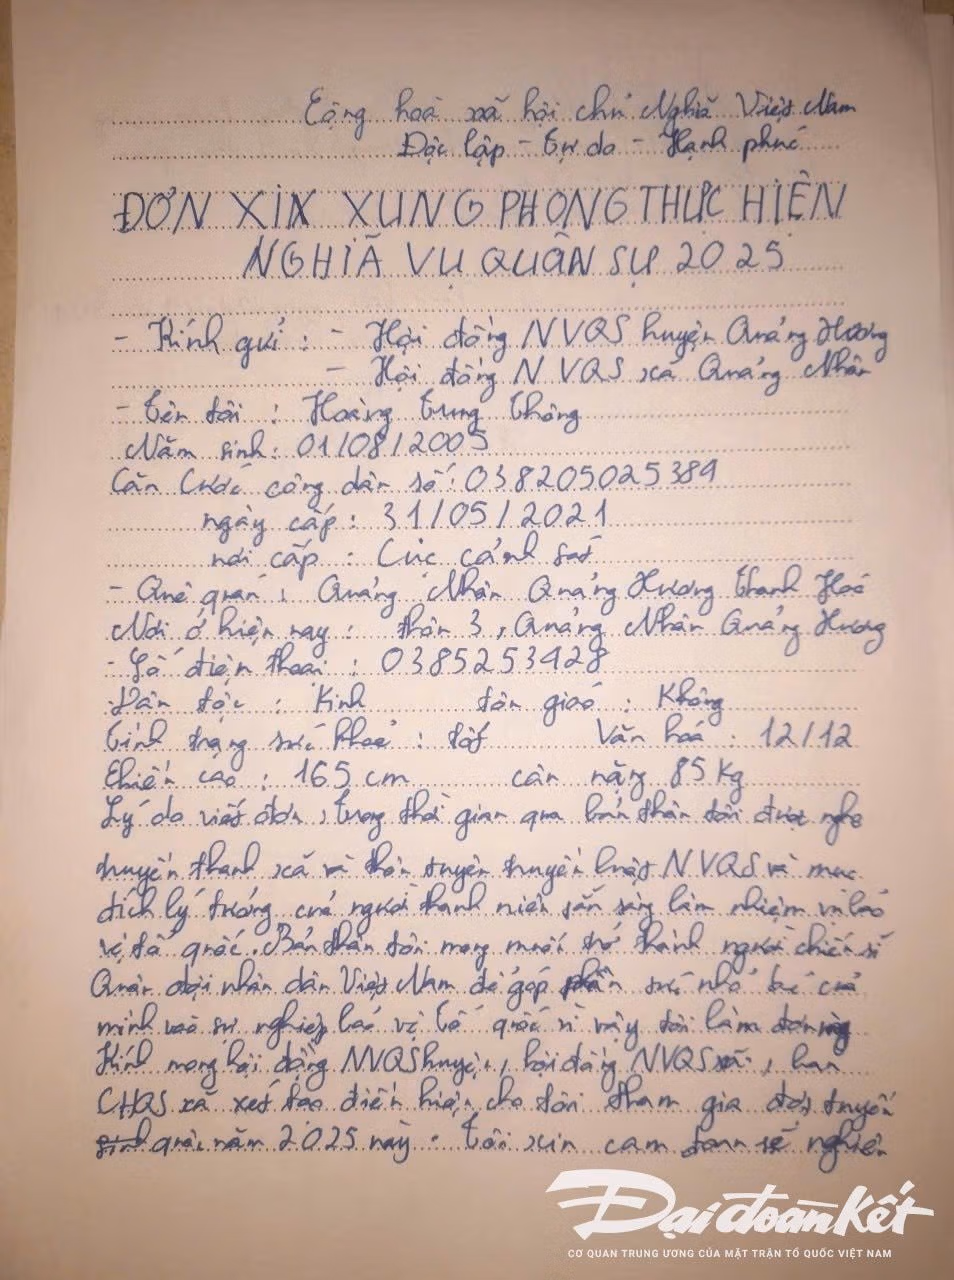 Cộng hoà xã hội chủ Nghĩa Việt Nam
Độc lập - Tự do - Hạnh phúc
ĐƠN XIN XUNG PHONG THỰC HIỆN
NGHĨA VỤ QUÂN SỰ 2025
- Kính gửi : - Hội đồng NVQS huyện Quảng Xương
- Hội đồng NVQS xã Quảng Nhân
- Tên tôi : Hoàng Trung Thông
Năm sinh: 01/08/2005
Căn Cước công dân số: 038205025384
ngày cấp : 31/05/2021
nơi cấp : Cục cảnh sát
- Quê quán : Quảng Nhân Quảng Xương Thanh Hoá
Nơi ở hiện nay : thôn 3, Quảng Nhân Quảng Xương
- Số điện thoại : 0385253428
Dân tộc : Kinh tôn giáo : Không
Tình trạng sức khoẻ : tốt Văn hoá : 12/12
Chiều cao : 165 cm cân nặng 85 Kg
Lý do viết đơn, trong thời gian qua bản thân tôi được nghe
truyền thanh xã và thôn tuyên truyền luật NVQS và mục
đích lý tưởng của người thanh niên sẵn sàng làm nhiệm vụ bảo
vệ tổ quốc. Bản thân tôi mong muốn trở thành người chiến sĩ
Quân đội nhân dân Việt Nam để góp phần sức nhỏ bé của
mình vào sự nghiệp bảo vệ Tổ quốc vì vậy tôi làm đơn này
Kính mong hội đồng NVQS huyện, hội đồng NVQS xã, ban
CHQS xã xét tạo điều kiện cho tôi tham gia đợt tuyển
quân năm 2025 này. Tôi xin cam đoan sẽ nghiêm
Đại đoàn kết
CƠ QUAN TRUNG ƯƠNG CỦA MẶT TRẬN TỔ QUỐC VIỆT NAM